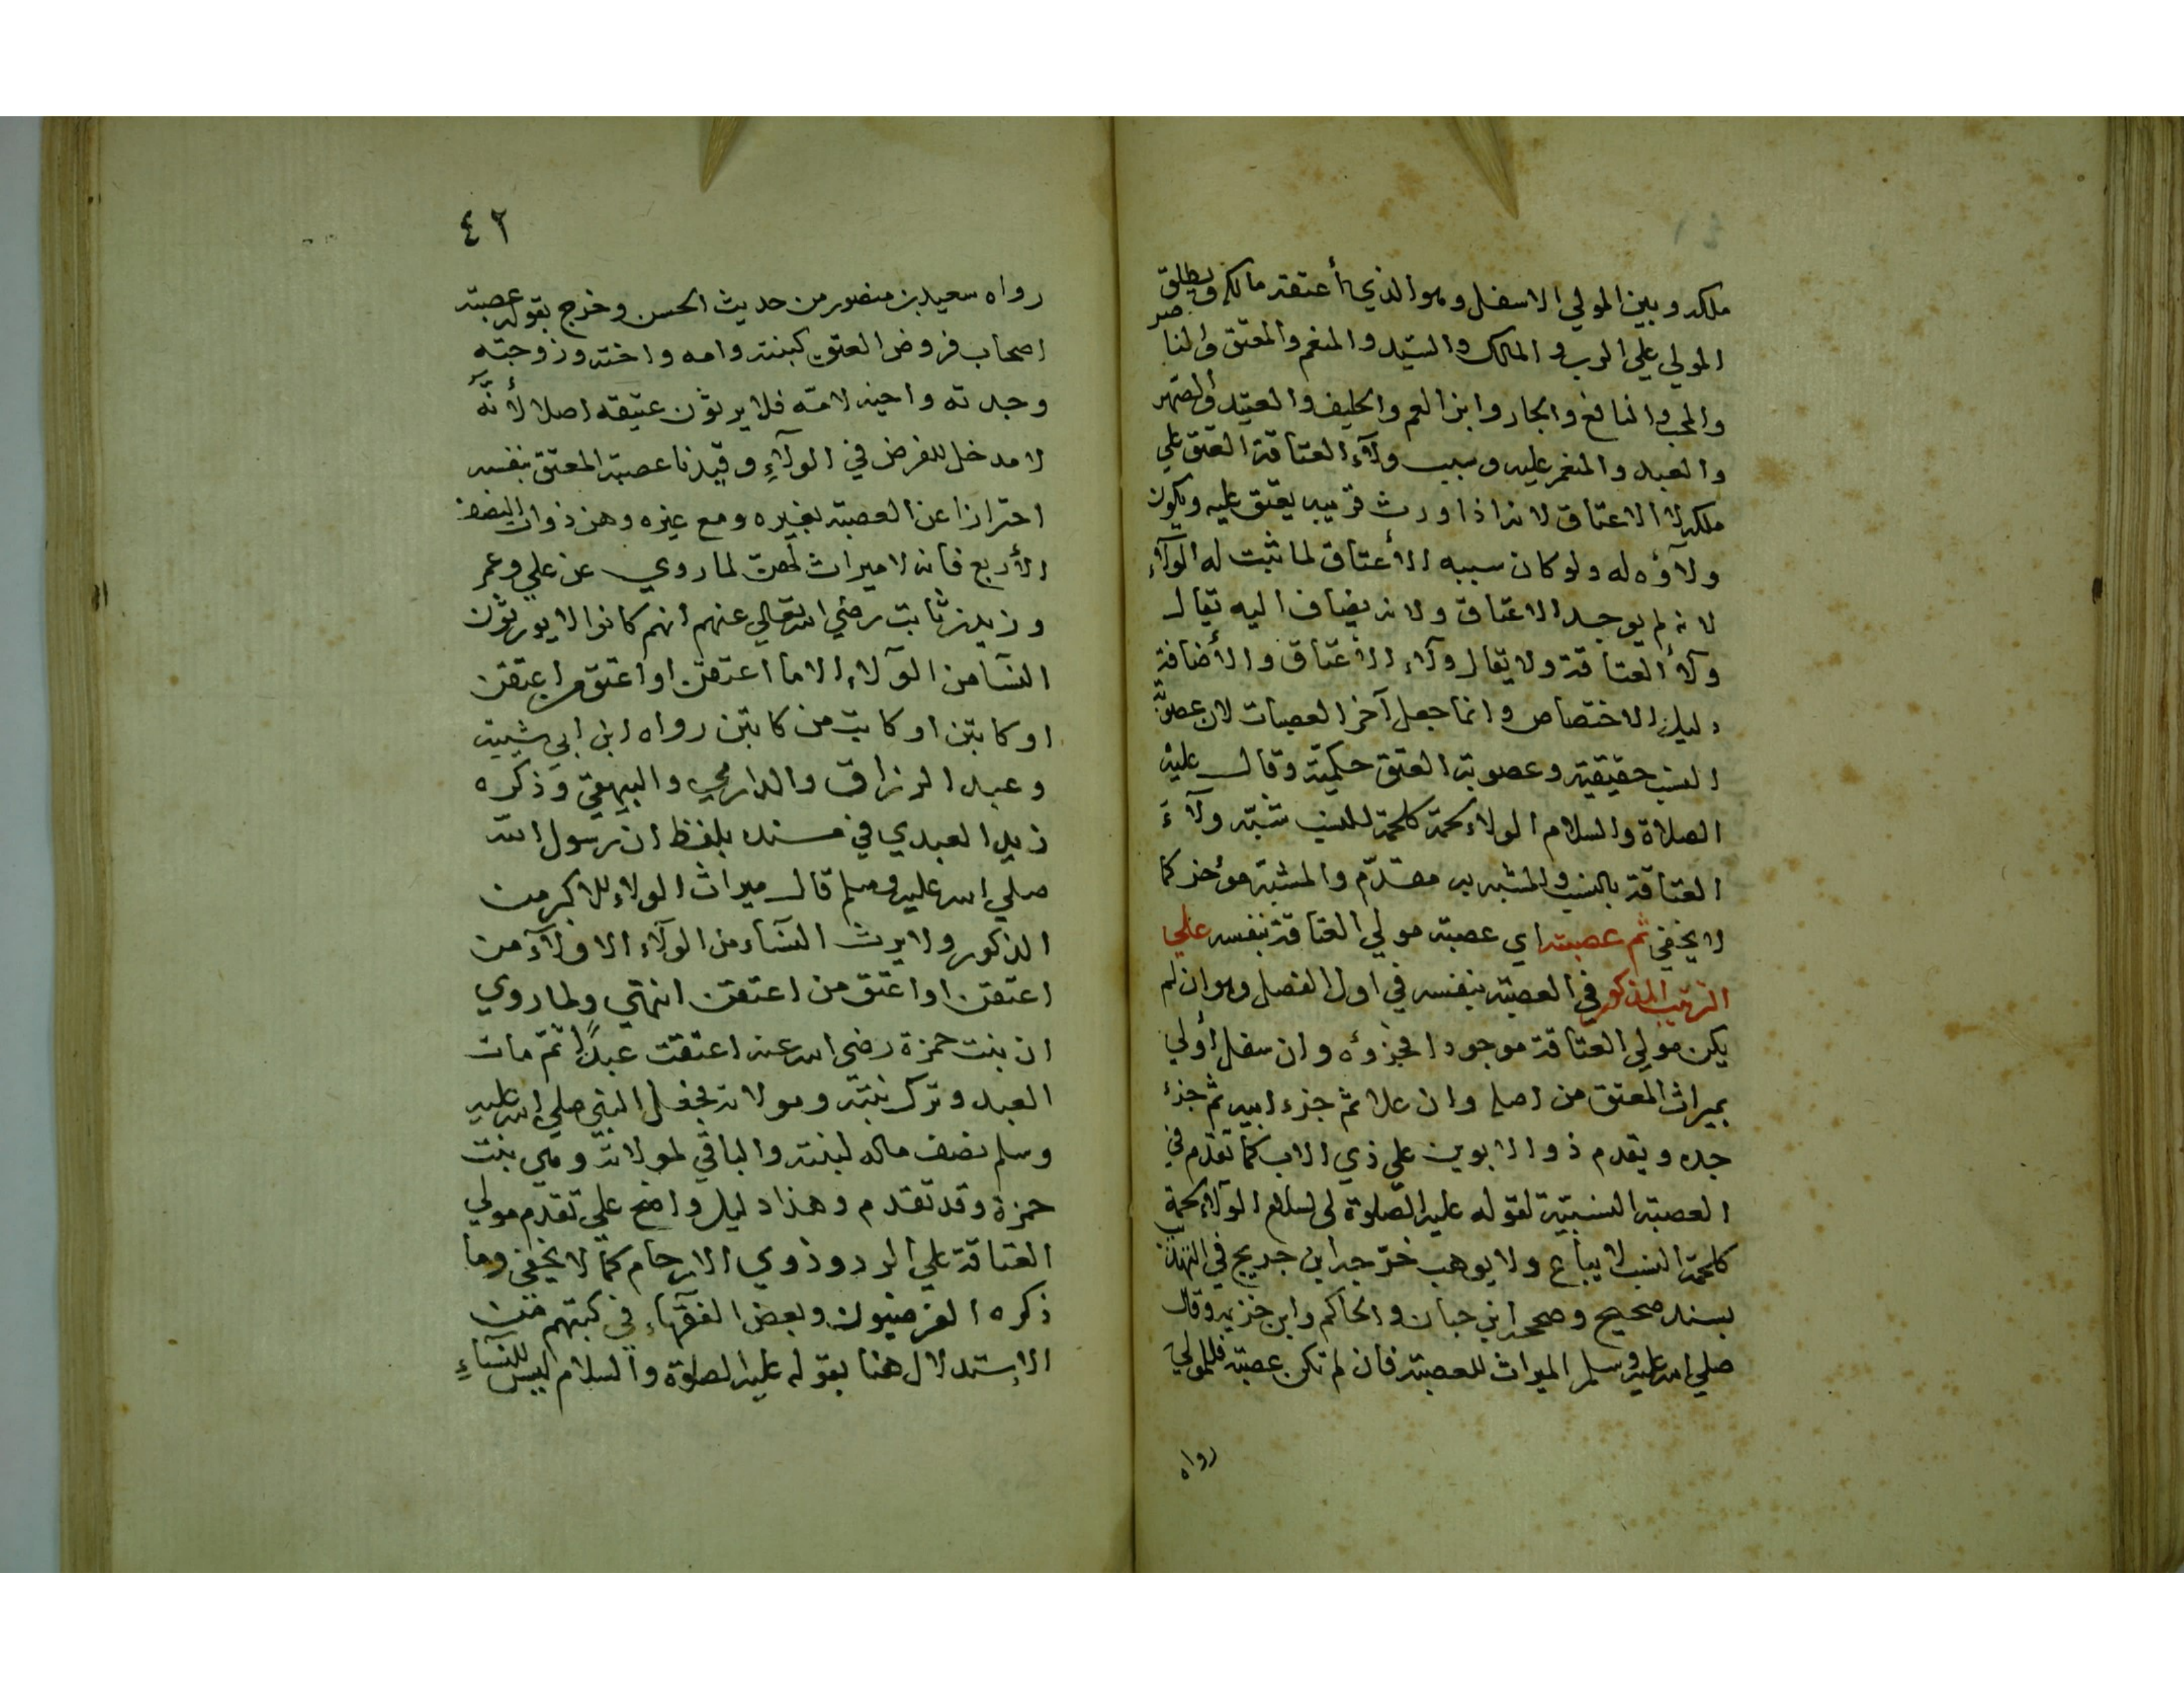 ملكه وبين المولي الاسفل وهو الذي أعتقه مالكه ويطلق
المولي علي الرب والمالك والسيد والمنعم والمعتق والناصر
والمحب والنافع والجار وابن العم والحليف والعقيد والصهر
والعبد والمنعم عليه وسبب ولآء العتاقة العتق علي
ملكه لا الاعتاق لانه اذا ورث قريبه يعتق عليه ويكون
ولآؤه له ولو كان سببه الأعتاق لما ثبت له الولآء
لانه لم يوجد الاعتاق ولانه يضاف اليه يقال
ولآء العتاقة ولا يقال ولآء الاعتاق والأضافة
دليل الاختصاص وانما جعل آخر العصبات لان عصوبة
النسب حقيقية وعصوبة العتق حكمية وقال عليه
الصلاة والسلام الولاء لحمة كلحمة النسب شبه ولآء
العتاقة بالنسب والمشبه به مقدّم والمشبه مؤخر كما
لا يخفي ثم عصبته اي عصبة مولي العتاقة بنفسه علي
الترتيب المذكور في العصبة بنفسه في اول الفصل وهو ان لم
يكن مولي العتاقة موجودا فجزؤه وان سفل أولي
بميراث المعتق من اصله وان علا ثم جزء ابيه ثم جزء
جده ويقدم ذو الابوين علي ذي الاب كما تقدم في
العصبة النسبية لقوله عليه الصلوة والسلام الولآء لحمة
كلحمة النسب لا يباع ولا يوهب خرّجه ابن جرير في التهذيب
بسند صحيح وصححه ابن حبان والحاكم وابن خزيمة وقال
صلي الله عليه وسلم الميراث للعصبة فان لم تكن عصبة فللمولي
رواه
٤٢
رواه سعيد بن منصور من حديث الحسن وخرج بقوله عصبته
اصحاب فروض المعتق كبنته وامه واخته وزوجته
وجدته واخيه لامّه فلا يرثون عتيقه اصلا لأنّه
لا مدخل للفرض في الولآءِ وقيدنا عصبة المعتق بنفسه
احترازا عن العصبة بغيره ومع غيره وهن ذوات النصف
الأربع فانه لا ميراث لهن لما روي عن علي وعمر
وزيد بن ثابت رضي الله تعالي عنهم انهم كانوا لا يورثون
النسآ من الولآء الا ما اعتقن او اعتق من اعتقن
او كاتبن او كاتب من كاتبن رواه ابن ابي شيبة
وعبد الرزاق والدارمي والبيهقي وذكره
زيد العبدي في مسنده بلفظ ان رسول الله
صلي الله عليه وسلم قال ميراث الولاء للاكبر من
الذكور ولا يرث النسآء من الولآء الا ولآء من
اعتقن او اعتق من اعتقن انتهي ولما روي
ان بنت حمزة رضي الله عنه اعتقت عبدًا ثم مات
العبد وترك بنته ومولاته فجعل النبي صلي الله عليه
وسلم نصف ماله لبنته والباقي لمولاته وهي بنت
حمزة وقد تقدم وهذا دليل واضح علي تقدم مولي
العتاقة علي الرد وذوي الارحام كما لا يخفي وما
ذكره الفرضيون وبعض الفقهآء في كتبهم من
الإستدلال هنا بقوله عليه الصلوة والسلام ليس للنسآءِ